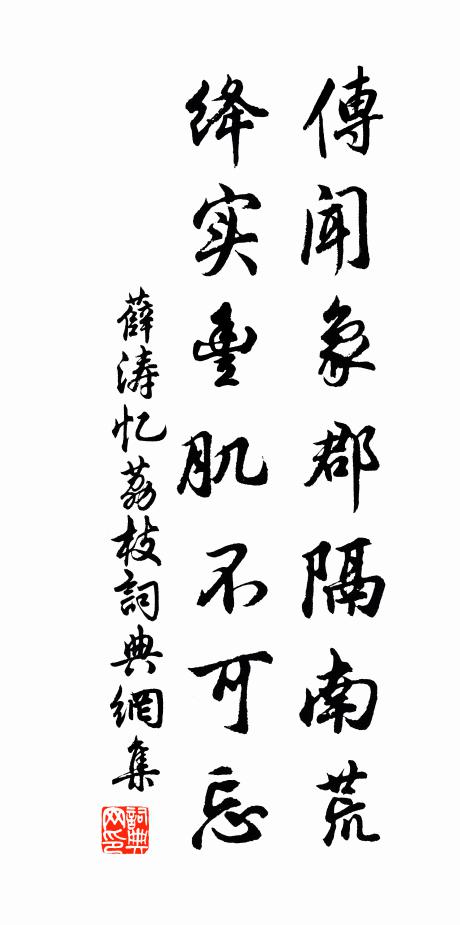 傳闻象郡隔南荒
绛实豊肌不可忘
薛涛忆荔枝詞典網集
詞典网印